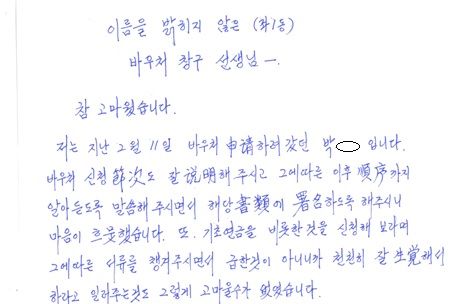 이름을 밝히지 않은 (좌1동)
바우처 창구 선생님 ㅡ.
참 고마웠습니다.
저는 지난 2월 11일 바우처 申請하러 갔던 박 입니다.
바우처 신청 節次도 잘 説明해 주시고 그에따른 이후 順序까지
알아듣도록 말씀해 주시면서 해당 書類에 署名하도록 해주시니
마음이 흐뭇했습니다. 또. 기초연금을 비롯한것을 신청해 보라며
그에따른 서류를 챙겨주시면서 급한것이 아니니까 천천히 잘 生覚해서
하라고 일러주는것도 그렇게 고마울수가 없었습니다.